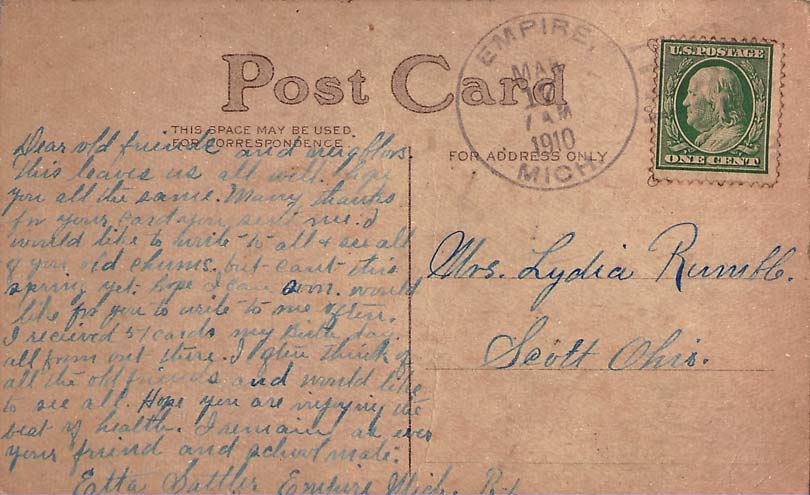 Post Card
THIS SPACE MAY BE USED
FOR CORRESPONDENCE
FOR ADDRESS ONLY
EMPIRE,
MAR
17
7 AM
1910
MICH
U.S. POSTAGE
ONE CENT
Dear old friends and neighbors.
This leaves us all well. hope
you all the same. Many thanks
for your card you sent me. I
would like to write to all & see all
of you old chums. but can't this
spring yet. hope I can soon. would
like for you to write to me often.
I recieved 51 cards my Birth day
all from out there. I often think of
all the old friends and would like
to see all. Hope you are injoying the
best of health. I remain as ever
your friend and schoolmate.
Etta Sattler Empire Mich.
Mrs. Lydia Rumble.
Scott Ohio.